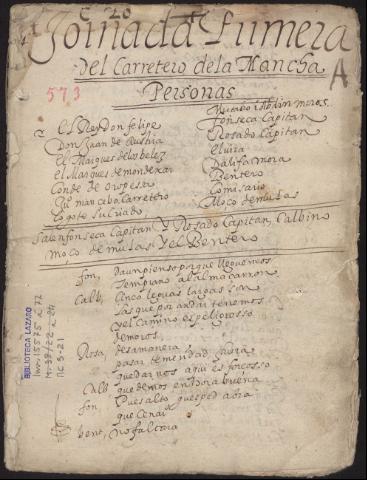 C 20
Jornada Primera
del Carretero de la Mancha
A
573
Personas
El Rey don felipe
Don Juan de Austria
El Marques de los belez
El Marques de mondexar
Conde de oropesa
Roman cebo Carretero
Cogote su criado
fonseca Capitan
Rosado Capitan
Elvira
Dalifa mora
Bentero
Comisario
Moço de mulas
Salen fonseca Capitan y Rosado Capitan, Calbino
moço de mulas y el Bentero
fon, Da un pienso porque lleguemos
temprano al almacarron
Calb, Cinco leguas largas son
las que por andar tenemos
y el camino es peligrosso
de moros,
Rosa, desa manera
pasar temeridad fuera
quedarnos aqui es forcosso
Alb quedemos en hora buena
fon Pues alto guesped aora
que cenar
bent, no faltara
BIBLIOTECA LAZARO
Inv. 15575 a 72
M-38/22 a 24
RC 3-21